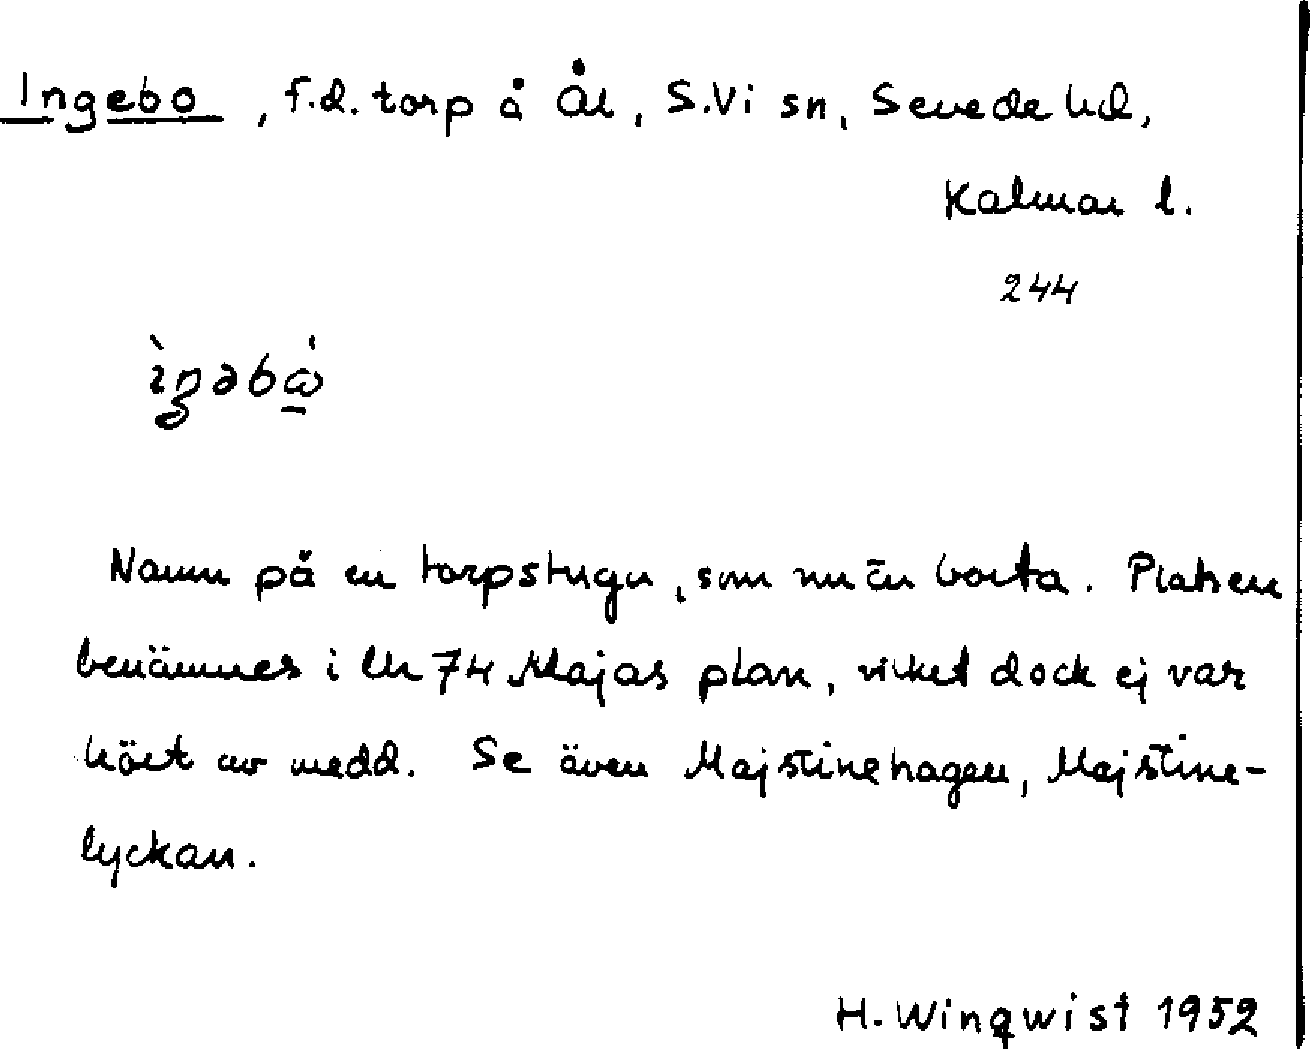 Ingebo, f.d. torp å Ål, S.Vi sn, Sevede hd,
Kalmar l.
244
Namn på en torpstuga, som nu är borta. Platsen
benämnes i LM 74 Majas plan, vilket dock ej var
hört av medd. Se även Majstinehagen, Majstine-
lyckan.
H. Winqwist 1952